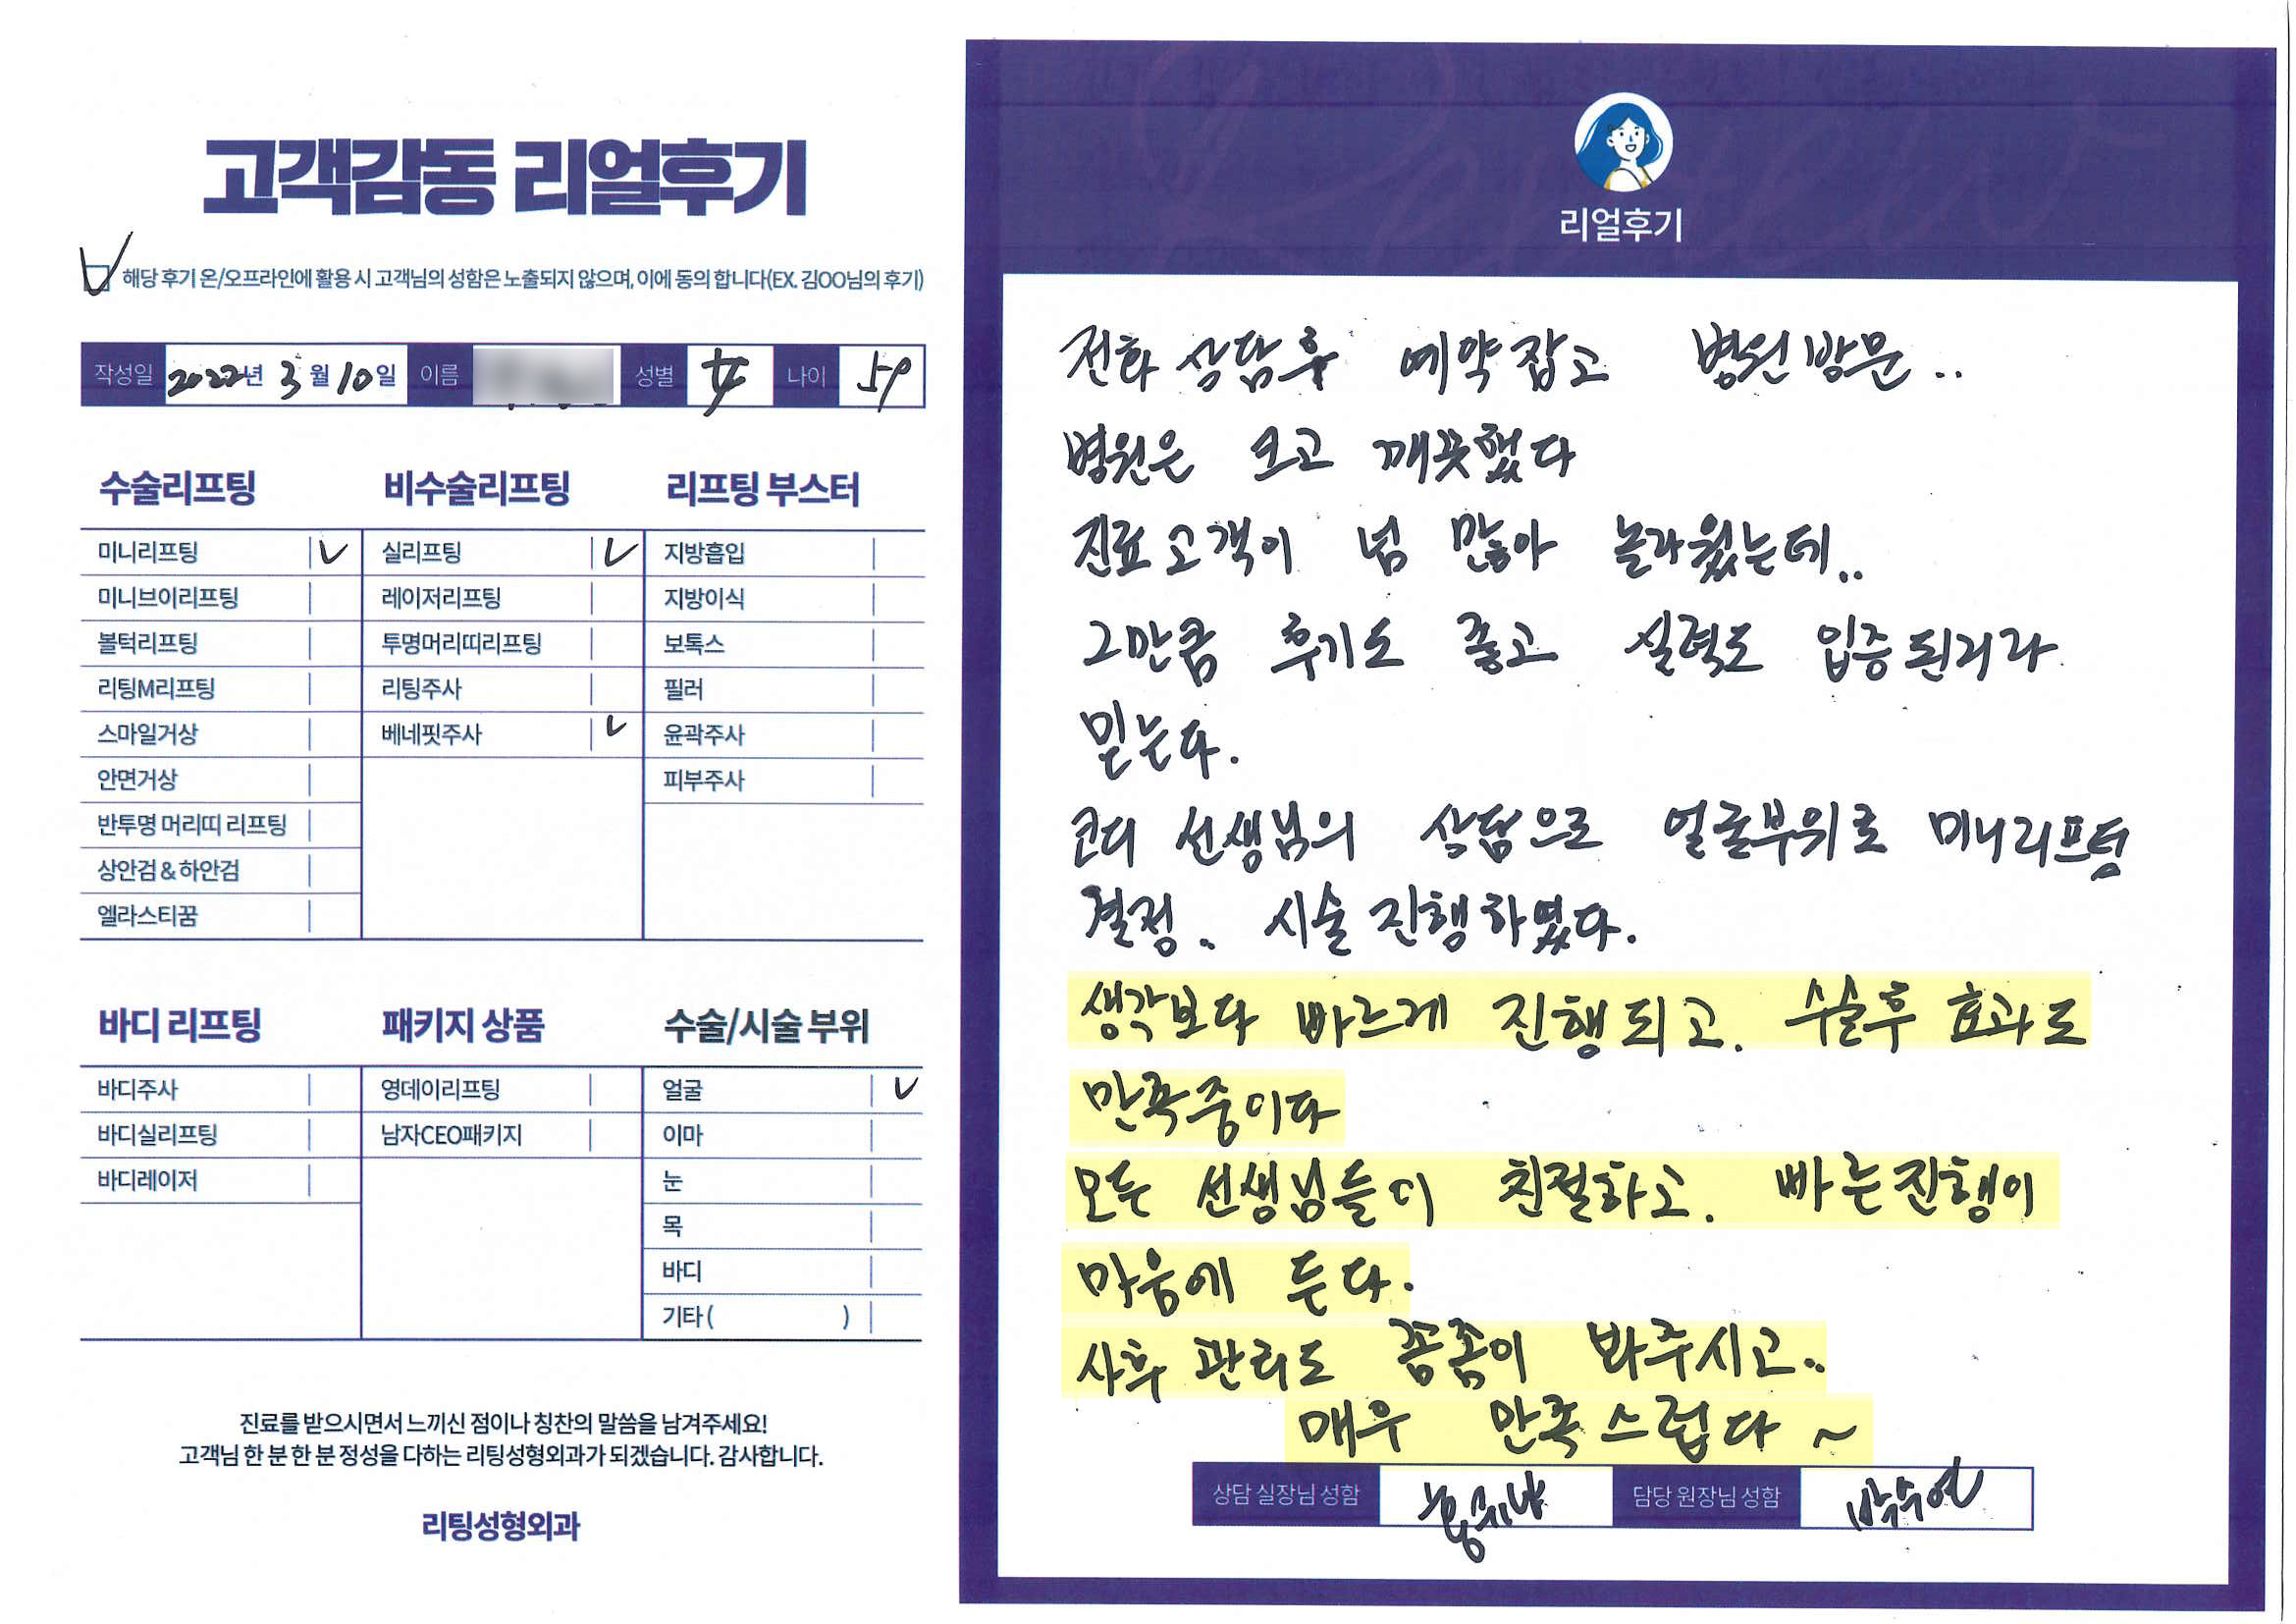 고객감동 리얼후기
해당 후기 온/오프라인에 활용 시 고객님의 성함은 노출되지 않으며, 이에 동의 합니다(EX. 김OO님의 후기)
작성일 2022년 3월 10일 이름 성별 女 나이 59
수술리프팅 비수술리프팅 리프팅 부스터
미니리프팅 실리프팅 지방흡입
미니브이리프팅 레이저리프팅 지방이식
볼턱리프팅 투명머리띠리프팅 보톡스
리팅M리프팅 리팅주사 필러
스마일거상 베네핏주사 윤곽주사
안면거상 피부주사
반투명 머리띠 리프팅
상안검 & 하안검
엘라스티꿈
바디 리프팅 패키지 상품 수술/시술 부위
바디주사 영데이리프팅 얼굴
바디실리프팅 남자CEO패키지 이마
바디레이저 눈
목
바디
기타 ( )
진료를 받으시면서 느끼신 점이나 칭찬의 말씀을 남겨주세요!
고객님 한 분 한 분 정성을 다하는 리팅성형외과가 되겠습니다. 감사합니다.
리팅성형외과
리얼후기
전화 상담후 예약잡고 병원방문..
병원은 크고 깨끗했다
진료고객이 넘 많아 놀라웠는데..
그만큼 후기도 좋고 실력도 입증된리라
믿는다.
코디 선생님의 상담으로 얼굴부위로 미니리프팅
결정. 시술진행하였다.
생각보다 빠르게 진행되고. 수술후 효과도
만족중이다
모두 선생님들이 친절하고. 빠른진행이
마음에 든다.
사후 관리도 꼼꼼이 봐주시고..
매우 만족스럽다~
상담 실장님 성함 담당 원장님 성함 박수연